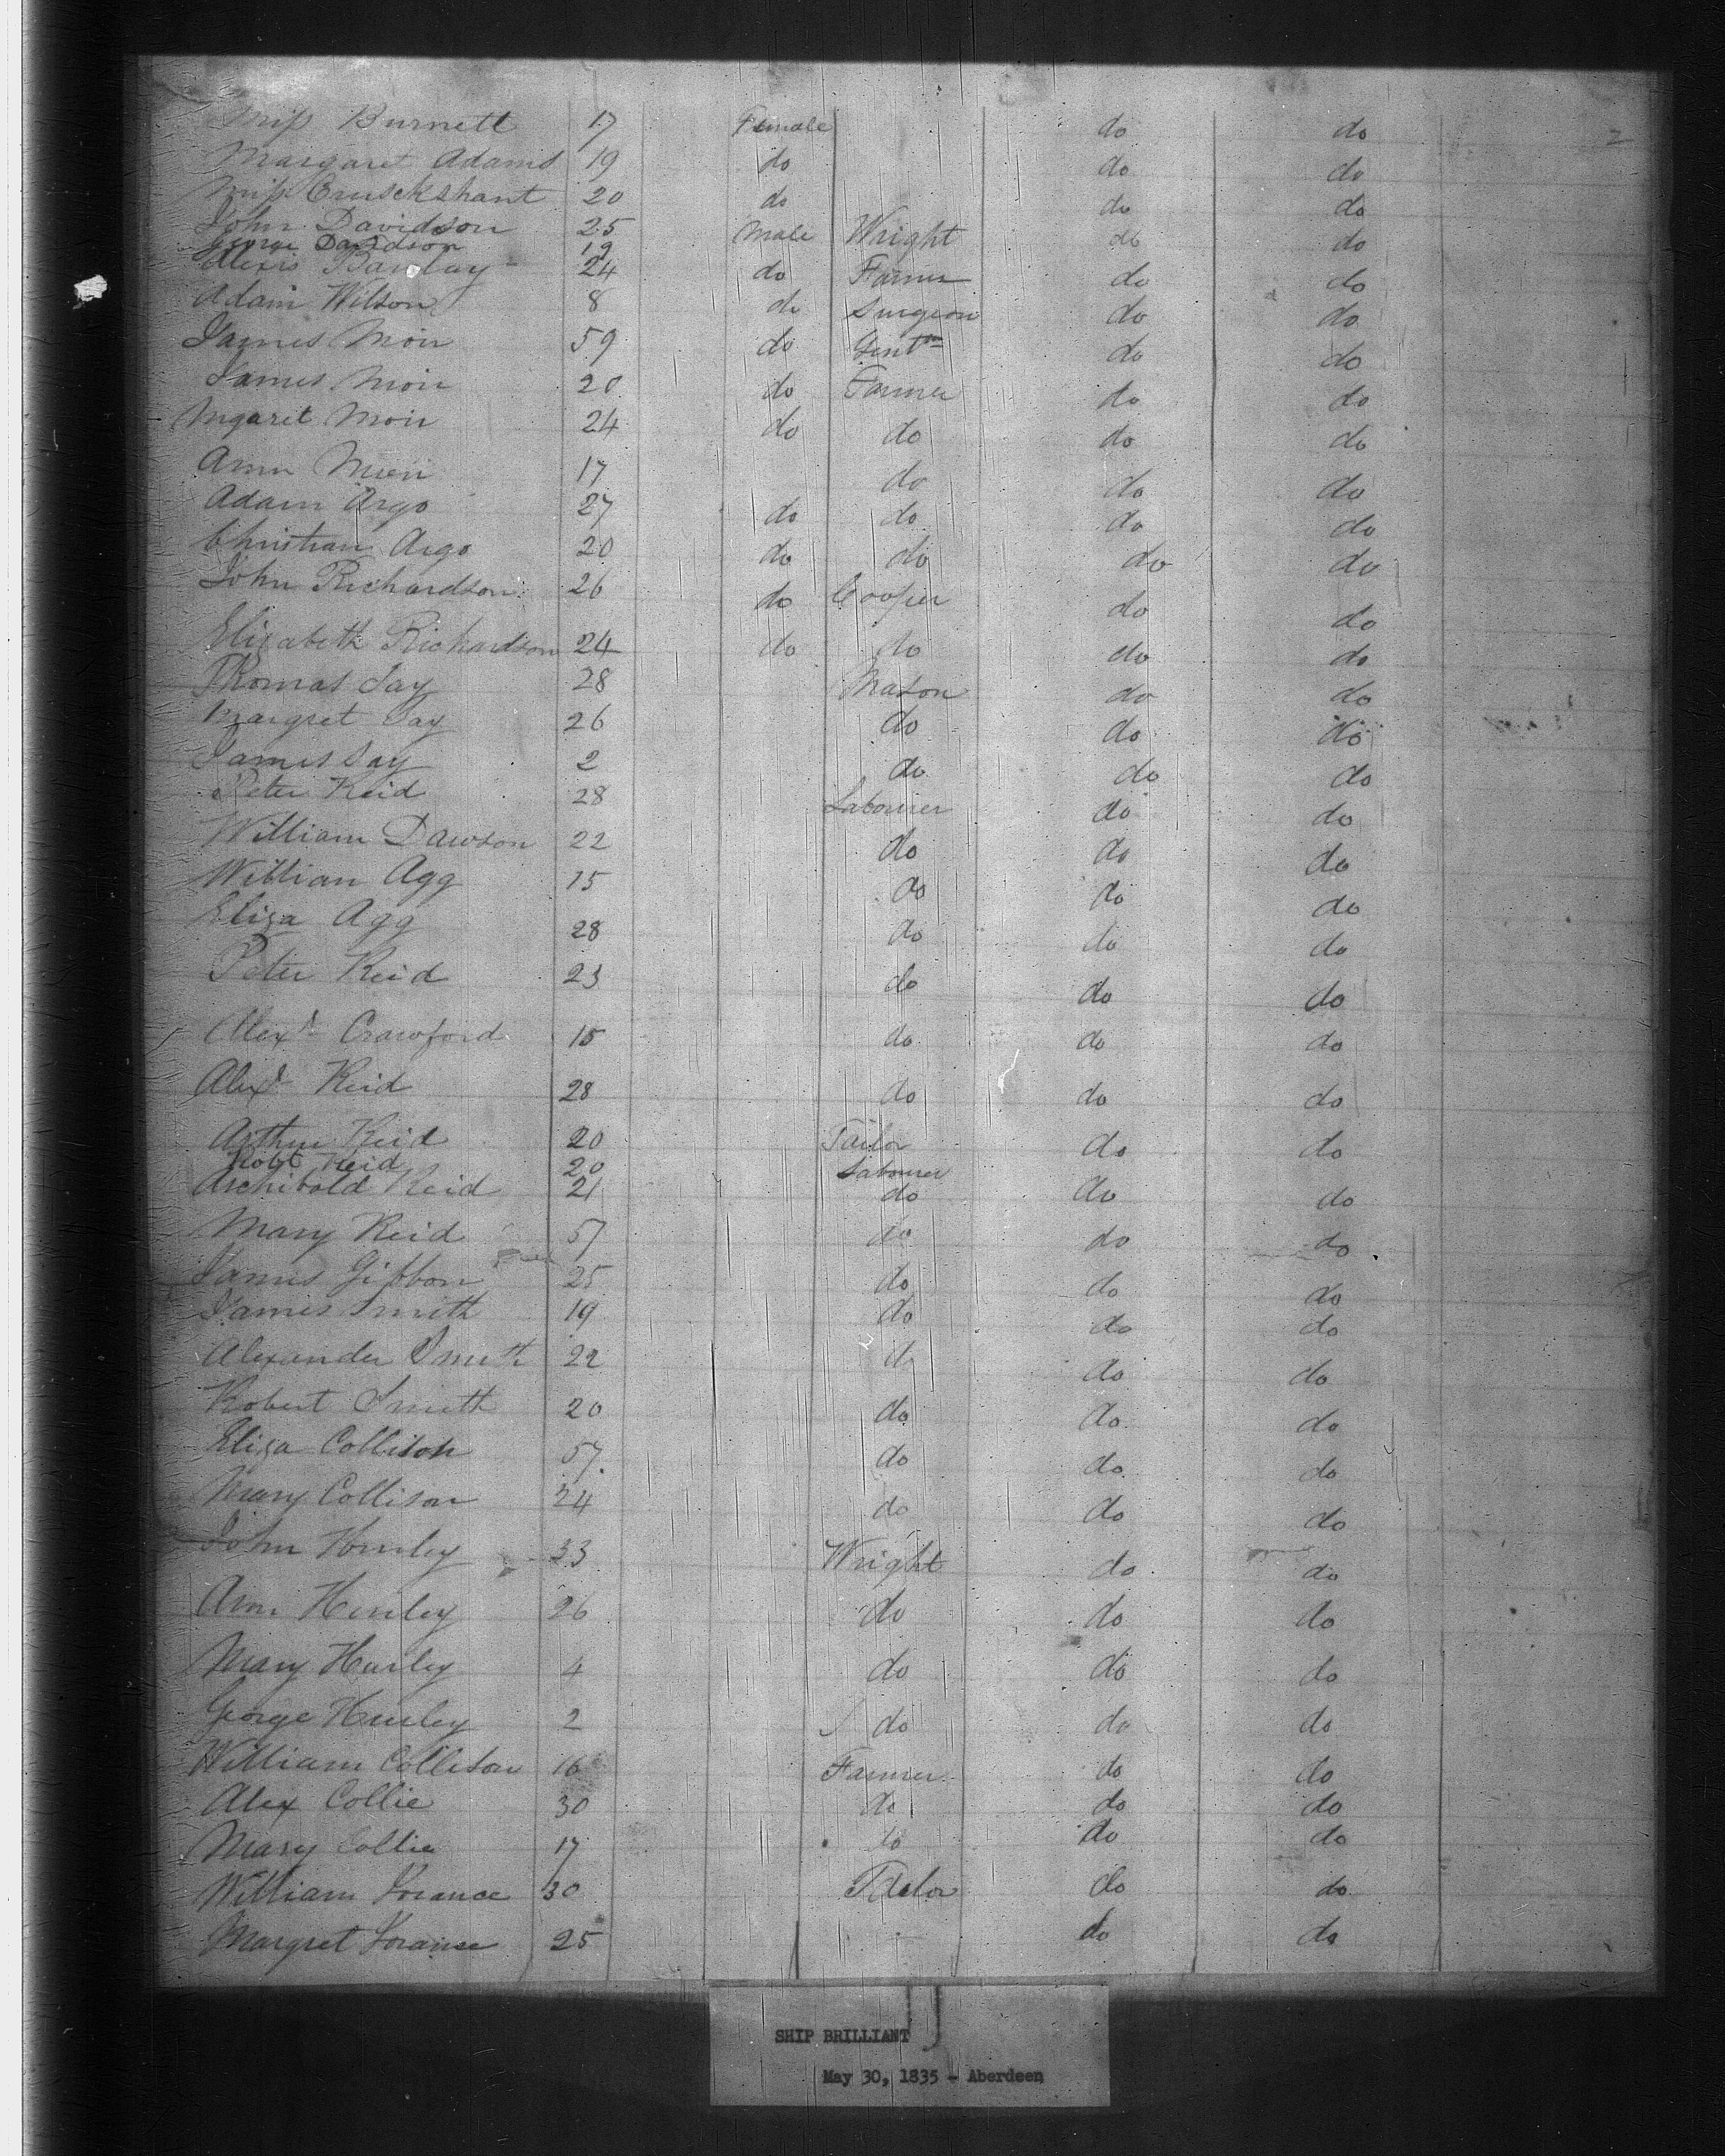 Miss Burnett 17 Female do do 2
Margaret Adams 19 do do do
Miss Cruickshant 20 do do do
John Davidson 25 Male Wright do do
George Davidson 19
Alexis Barclay 24 do Farmer do do
Adam Wilson 8 do Surgeon do do
James Moir 59 do Gentm do do
James Moir 20 do Farmer do do
Mgaret Moir 24 do do do do
Ann Moir 17 do do do
Adam Argo 27 do do do do
Christian Argo 20 do do do do
John Richardson 26 do Cooper do do
Elizabeth Richardson 24 do do do do
Thomas Jay 28 Mason do do
Margret Jay 26 do do do
James Jay 2 do do do
Peter Reid 28 Labourer do do
William Dawson 22 do do do
William Agg 15 do do do
Eliza Agg 28 do do do
Peter Reid 23 do do do
Alexr Crawford 15 do do do
Alexr Reid 28 do do do
Arthur Reid 20 Tailor do do
Robt Reid 20 Labourer
Archibald Reid 21 do do do
Mary Reid 57 do do do
James Gibbon 25 do do do
James Smith 19 do do do
Alexander Smith 22 do do do
Robert Smith 20 do do do
Eliza Collison 57 do do do
Mary Collison 24 do do do
John Hurley 33 Wright do do
Ann Hurley 26 do do do
Mary Hurley 4 do do do
George Hurley 2 do do do
William Collison 16 Farmer do do
Alex Collie 30 do do do
Mary Collie 17 do do do
William Lorance 30 Tailor do do
Margret Lorance 25 do do
SHIP BRILLIANT
May 30, 1835 - Aberdeen